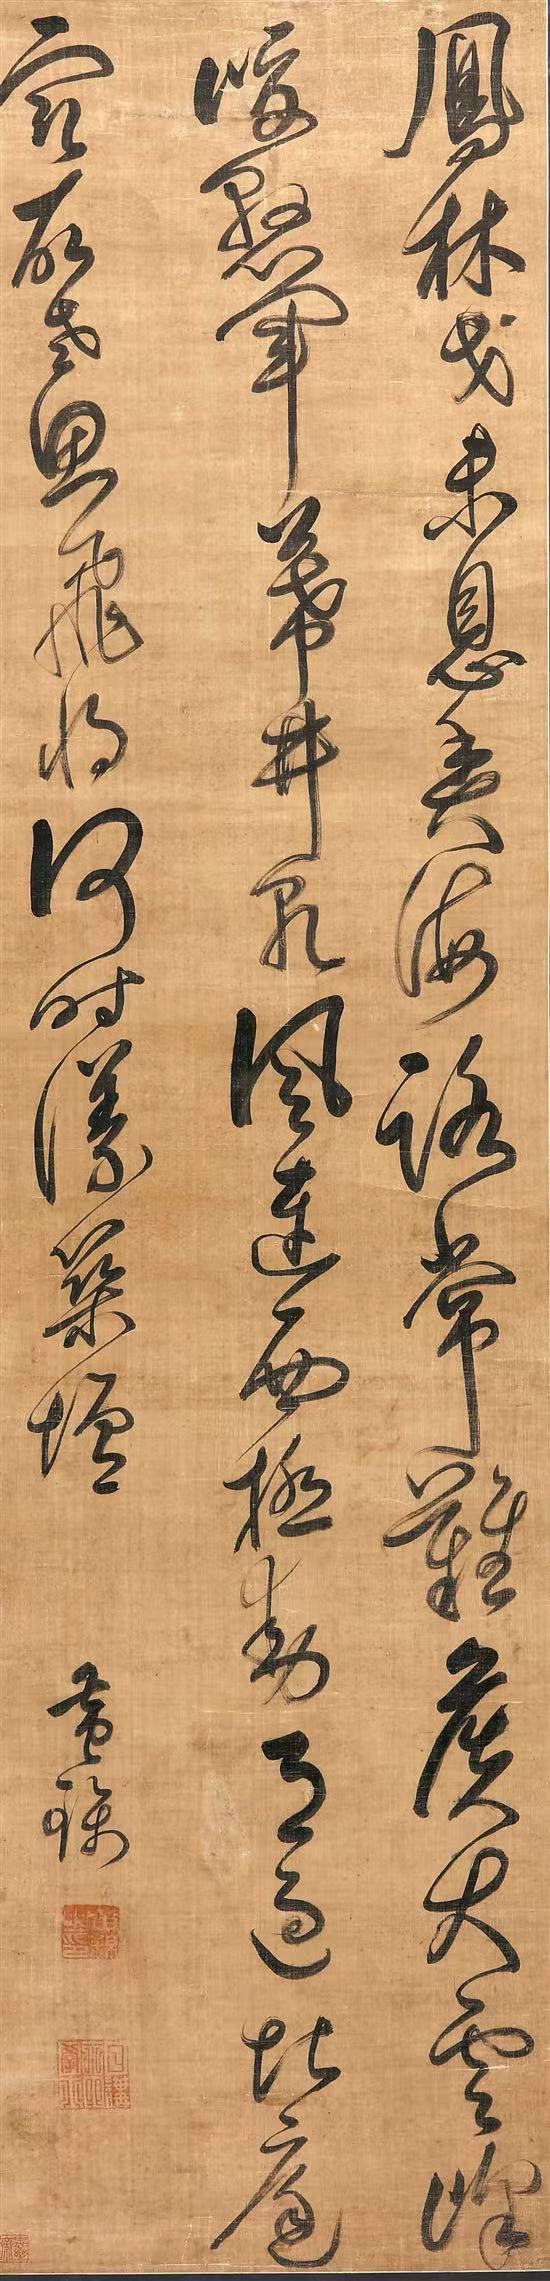 鳳林戈未息魚海路常難候火雲峰
峻懸軍幕井乾風連西極動月過北庭
寒故老思飛將何時議築壇
黃